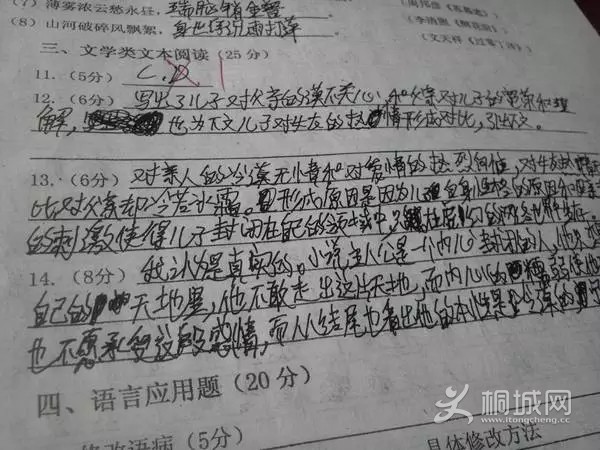 (7) 薄雾浓云愁永昼,瑞脑销金兽
(周邦彦《苏幕遮》)
(李清照《醉花阴》)
(8) 山河破碎风飘絮,身世浮沉雨打萍
(文天祥《过零丁洋》)
三、文学类文本阅读(25分)
11. (5分) C.D
12. (6分) 写出了儿子对父亲的漠不关心,和父亲对儿子的宽容和理
解, 也为下文儿子对女友的热情形成对比,引出下文。
13. (6分) 对亲人的冷漠无情和对爱情的热烈向往,对女友
比对父亲却冷若冰霜。形成原因是因为儿子自身性格的原因和
的刺激使得儿子封闭在自己的领域中,
14. (8分) 我认为是真实的。小说主人公是一个内心封闭的人,他
自己的 天地里,他不敢走出这片天地,而内心的 使他
也不愿承受这段感情,而从结尾也看出他的本性是冷漠的
四、语言应用题(20分)
修改语病(5分)
具体修改方法
桐城网
www.itongcheng.cc